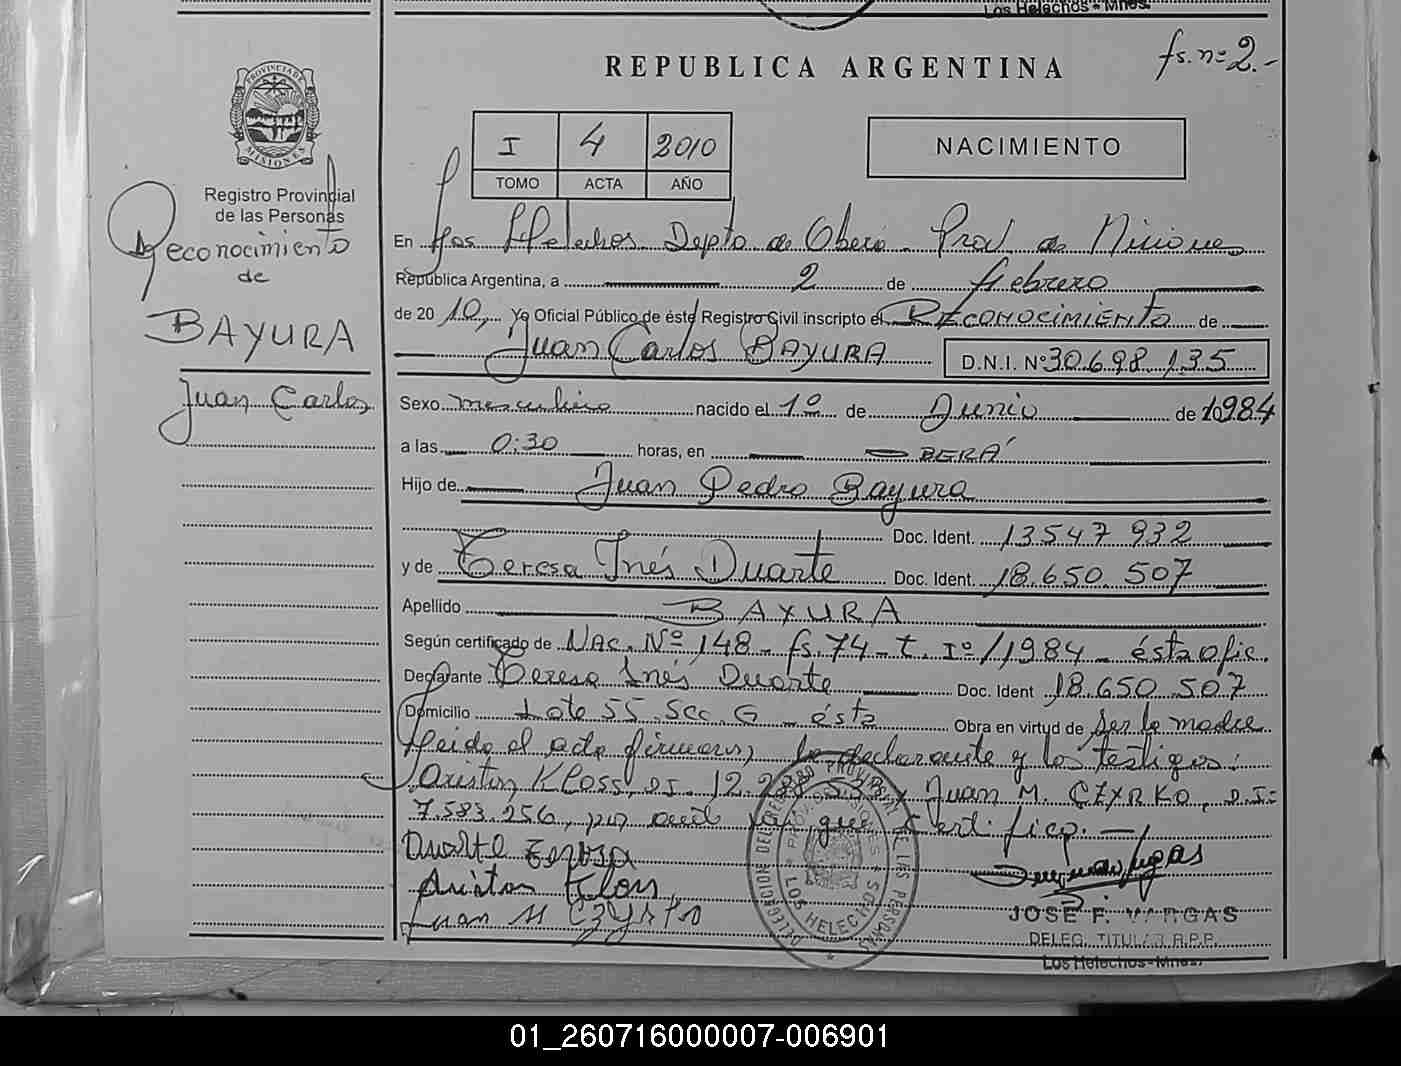 Los Helechos - Mnes.
fs. nº 2.-
REPUBLICA ARGENTINA
PROVINCIA DE MISIONES
I 4 2010
TOMO ACTA AÑO
NACIMIENTO
Registro Provincial
de las Personas
Reconocimiento
de
BAYURA
Juan Carlos
En Los Helechos Depto de Oberá - Prov de Misiones
República Argentina, a 2 de febrero
de 2010, Yo Oficial Público de éste Registro Civil inscripto el RECONOCIMIENTO de
Juan Carlos BAYURA D.N.I. Nº 30.698.135
Sexo masculino nacido el 1º de Junio de 1984
a las 0:30 horas, en OBERÁ
Hijo de Juan Pedro Bayura
Doc. Ident. 13547 932
y de Teresa Inés Duarte Doc. Ident. 18.650.507
Apellido BAYURA
Según certificado de NAC. Nº 148 - fs. 74 - t. Iº/1984 - ésta ofic.
Declarante Teresa Inés Duarte Doc. Ident 18.650.507
Domicilio Lote 55 Sec. G - ésta Obra en virtud de ser la madre
Leida el acta firman, la declarante y los testigos:
Ariston Kloss, D.I. 12.288.538 y Juan M. CZYRKO, D.I:
7.583.256, por ante mí, que certifico. -
Duarte Teresa
Ariston Kloss
Juan M CZYRKO
DELEGACION DEL REGISTRO PROVINCIAL DE LAS PERSONAS
PROV. DE MISIONES
LOS HELECHOS
JOSE F. VARGAS
DELEG. TITULAR R.P.P.
Los Helechos-Mnes.
01_260716000007-006901